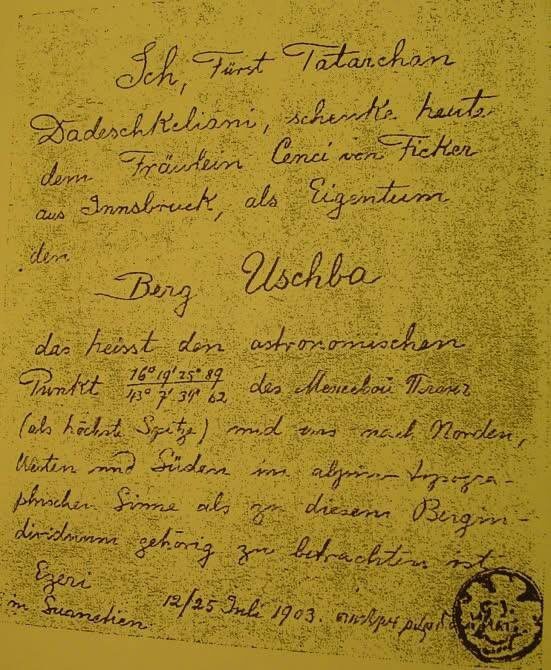 Ich, Fürst Tatarchan
Dadeschkeliani, schenke heute
dem Fräulein Cenci von Ficker
aus Innsbruck, als Eigentum
den
Berg Uschba
das heisst den astronomischen
Punkt 16° 19' 25" 89 / 43° 7' 34" 62 des
(als höchste Spitze) und was nach Norden,
Westen und Süden im alpin-topogra-
phischen Sinne als zu diesem Bergin-
dividuum gehörig zu betrachten ist
Ezeri
in Suanetien 12/25 Juli 1903.